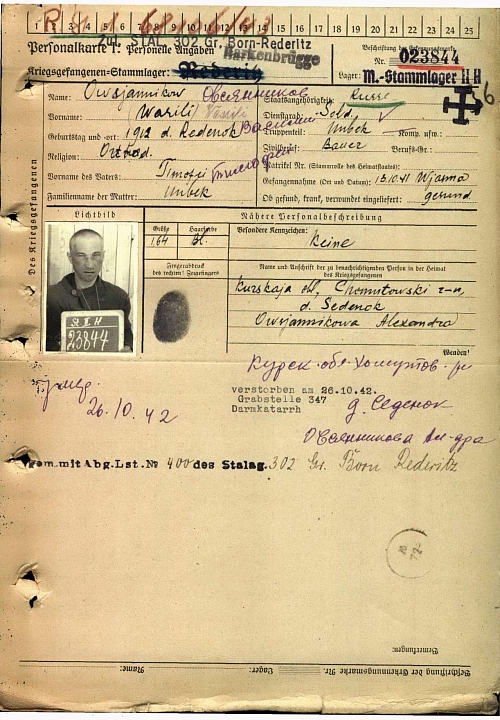 1 2 3 4 5 6 7 8 9 10 11 12 13 14 15 16 17 18 19 20 21 22 23 24 25
Personalkarte I: Personelle Angaben
STAL. 302 Gr. Born-Rederitz
Barkenbrügge
Beschriftung der Erkennungsmarke
Kriegsgefangenen-Stammlager: Rederitz
Nr. 023844
Lager: M.-Stammlager II H
Des Kriegsgefangenen
Name: Owsjannikow Овсянников
Staatsangehörigkeit: Russe
Vorname: Wasilij Василий
Dienstgrad: Sold.
Geburtstag und -ort: 1912 d. Sedenok
Truppenteil: Unbek Komp. usw.:
Religion: Orthod.
Zivilberuf: Bauer Berufs-Gr.:
Matrikel Nr. (Stammrolle des Heimatstaates):
Vorname des Vaters: Timofej Тимофей
Gefangennahme (Ort und Datum): 13.10.41 Wjasma
Familienname der Mutter: Unbek
Ob gesund, krank, verwundet eingeliefert: gesund
Lichtbild
Nähere Personalbeschreibung
Größe Haarfarbe
Besondere Kennzeichen:
164 Bl.
Keine
Fingerabdruck
des rechten! Zeigefingers
Name und Anschrift der zu benachrichtigenden Person in der Heimat
des Kriegsgefangenen
St II H
23844
Kurskaja obl. Chomutowski r-n,
d. Sedenok
Owsjannikowa Alexandra
Wenden!
Курск. обл. Хомутов. р-н
умер.
26.10.42
verstorben am 26.10.42.
Grabstelle 347
Darmkatarrh
д. Седенок
Овсянникова Ал-дра
gem. mit Abg. Lst. № 400 des Stalag. 302 Gr. Born Rederitz
Bemerkungen:
Name: Lager:
Beschriftung der Erkennungsmarke Nr.